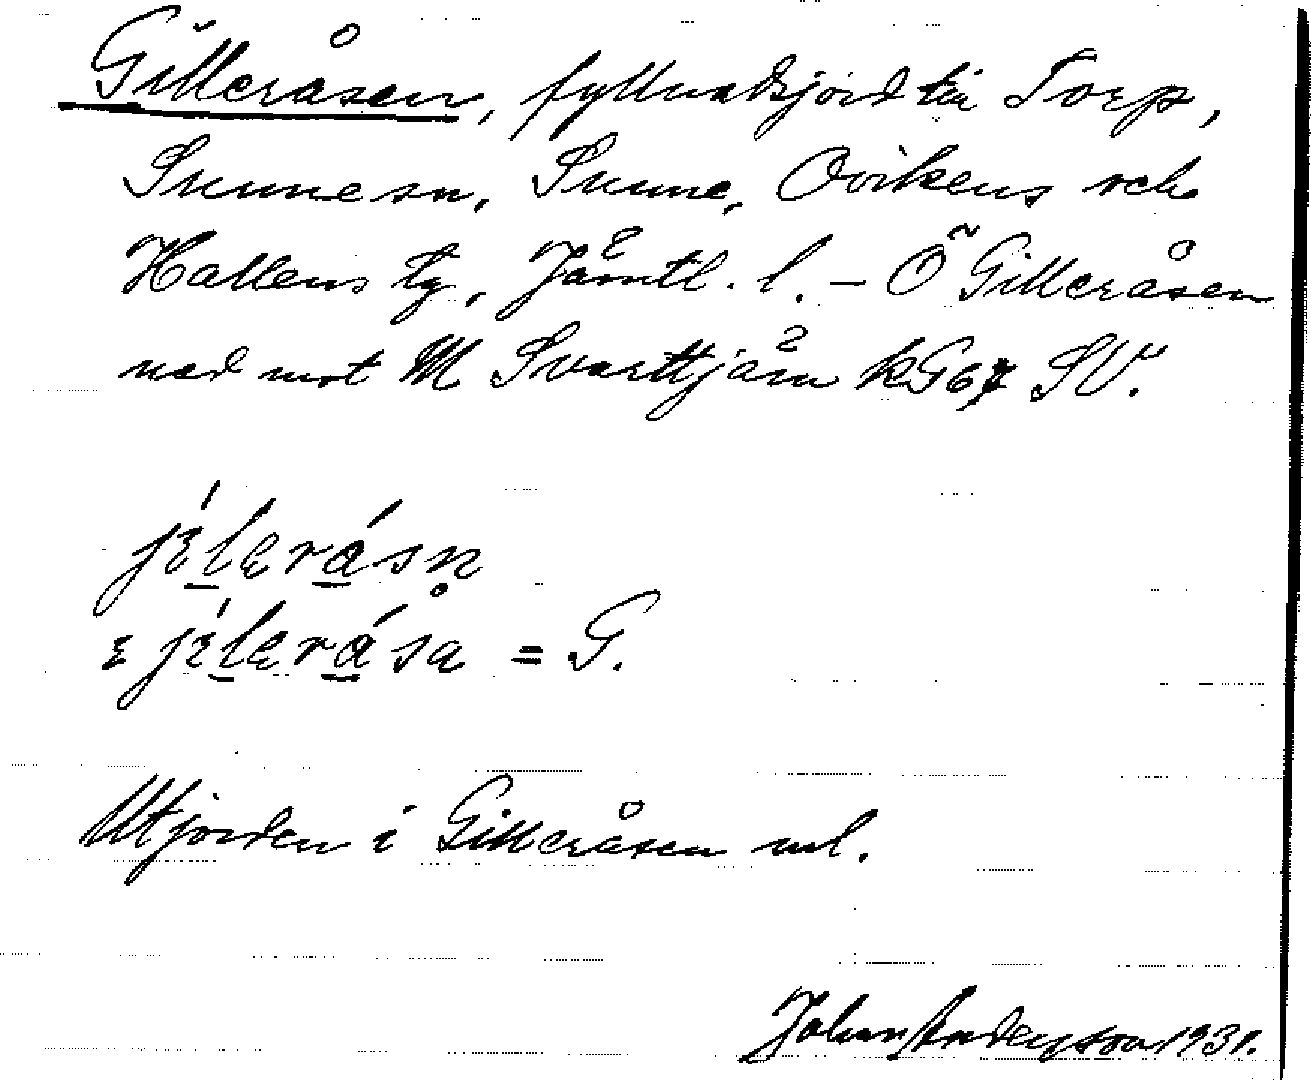 Gilleråsen, fyllnadsjord till Torp,
Sunne sn, Sunne, Ovikens och
Hallens tg, Jämtl. l. – Ö Gilleråsen
ned mot M Svarttjärn kG67 SV.
jɛ́leråsn
ɛ jɛ́leråsa = G.
Utjorden i Gilleråsen ml.
Johan Anderson 1931.